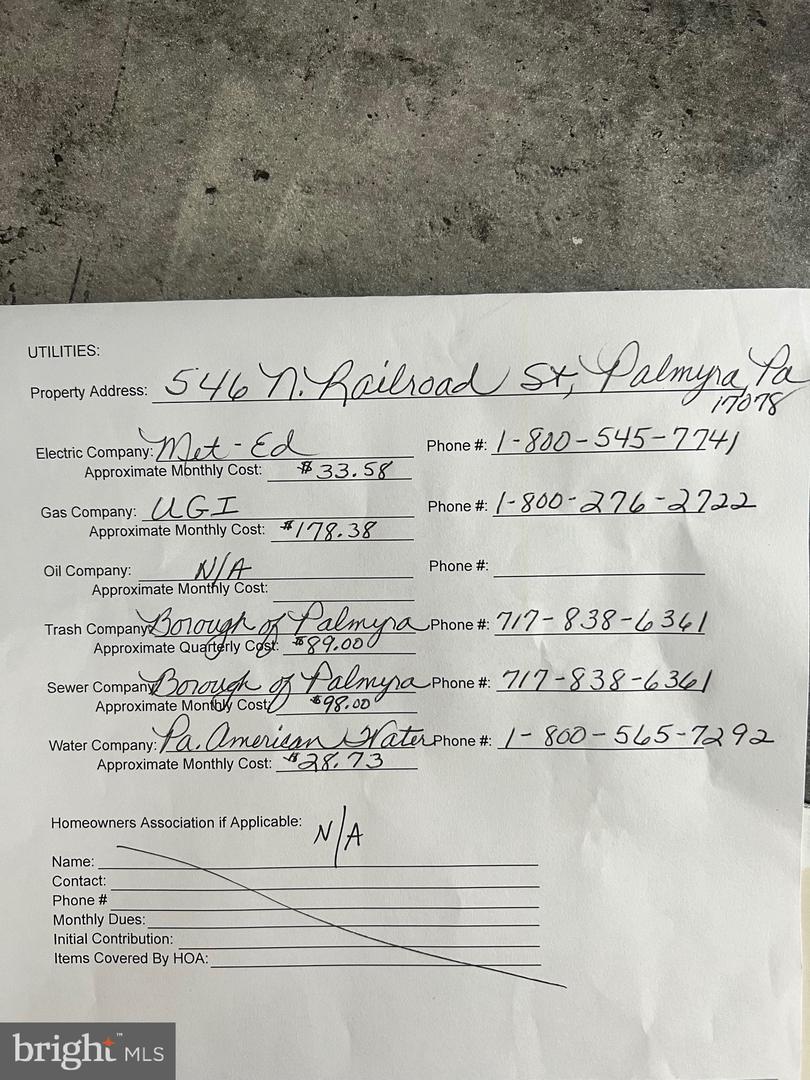 UTILITIES:
Property Address: 546 N. Railroad St, Palmyra, Pa
17078
Electric Company: Met-Ed Phone #: 1-800-545-7741
Approximate Monthly Cost: $33.58
Gas Company: UGI Phone #: 1-800-276-2722
Approximate Monthly Cost: $178.38
Oil Company: N/A Phone #:
Approximate Monthly Cost:
Trash Company: Borough of Palmyra Phone #: 717-838-6361
Approximate Quarterly Cost: $89.00
Sewer Company: Borough of Palmyra Phone #: 717-838-6361
Approximate Monthly Cost: $98.00
Water Company: Pa. American Water Phone #: 1-800-565-7292
Approximate Monthly Cost: $28.73
Homeowners Association if Applicable: N/A
Name:
Contact:
Phone #
Monthly Dues:
Initial Contribution:
Items Covered By HOA:
bright™ MLS